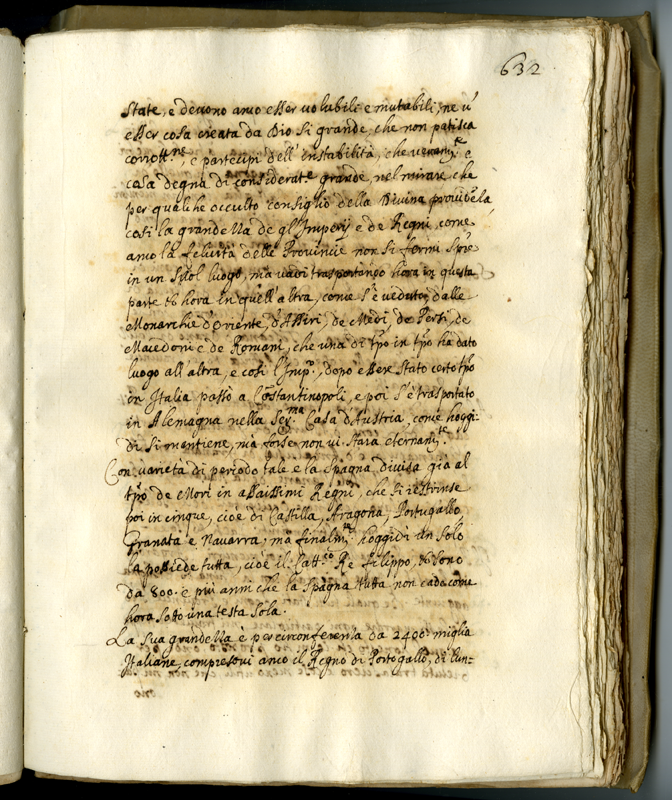 632
state, e devono anco esser volubili e mutabili, ne v'
esser cosa creata da Dio si grande, che non patisca
corrott.ne, e partecipi dell' instabilità, che veram.te e
cosa degna di considerat.e grande, nel mirare che
per qualche occulto consiglio della Divina providēza
così la grandezza de gl'Imperij e de Regni, come
anco la felicità delle Provincie non si fermi sp̄re
in un sol luogo, ma vadi trasportando hora in questa
parte et hora in quell'altra, come s'è veduto, dalle
Monarchie d'Oriente, d'Assiri, de Medi, de Persi, de
Macedoni e de Romani, che una di tp̄o in tp̄o ha dato
luogo all'altra, e così l'Imp.o, dopo essere stato certo tp̄o
in Italia passò a Cōstantinopoli, e poi s'è trasportato
in Alemagna nella Ser.ma Casa d'Austria, com'è hoggi-
di si mantiene, ma forse non vi starà eternam.te.
Con varietà di periodo tale e la Spagna divisa già al
tp̄o de Mori in assaissimi Regni, che si restrinse
poi in cinque, cioè di Castilla, Aragona, Portugallo
Granata e Navarra; ma finalm.te hoggidi un solo
la possiede tutta, cioè il Catt.co Re Filippo, et sono
da 800. e piu anni che la Spagna tutta non cade come
hora sotto una testa sola.
La sua grandezza è per circonferenza da 2400. miglia
Italiane, compresovi anco il Regno di Portogallo, di lun-